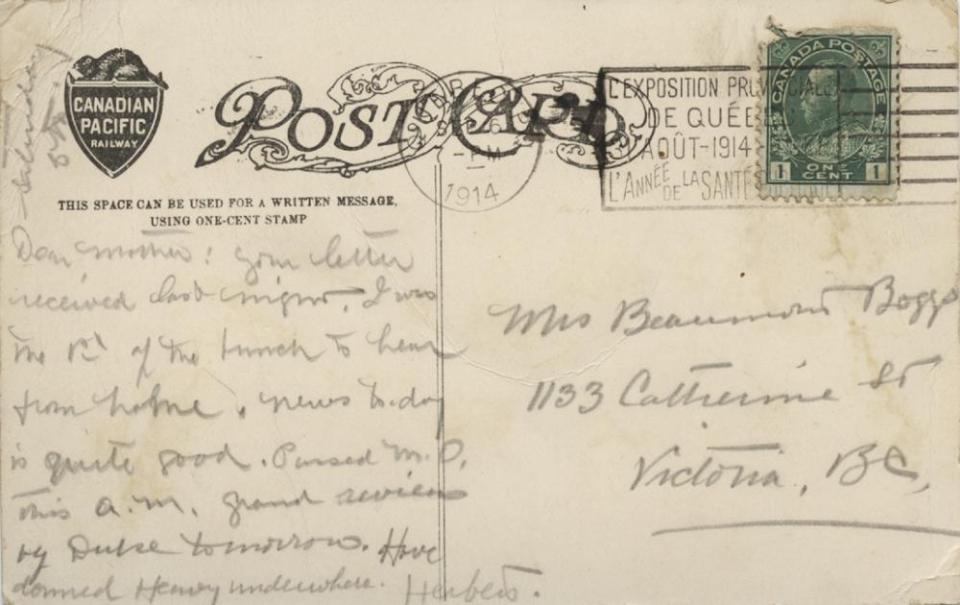 CANADIAN
PACIFIC
RAILWAY
POST CARD
THIS SPACE CAN BE USED FOR A WRITTEN MESSAGE,
USING ONE-CENT STAMP
PM
1914
L'EXPOSITION PROVINCIALE
DE QUÉBEC
AOÛT-1914
L'ANNÉE DE LA SANTÉ
CANADA POSTAGE
1 ONE CENT 1
Saturday
5th
Dear Mother: your letter
received last night. I was
the 1st of the bunch to hear
from home. news to-day
is quite good. Passed M.O.
this a.m. grand review
by Duke tomorrow. Have
donned Heavy underwhere. Herbert.
Mrs Beaumont Boggs
1133 Catherine St
Victoria, BC,